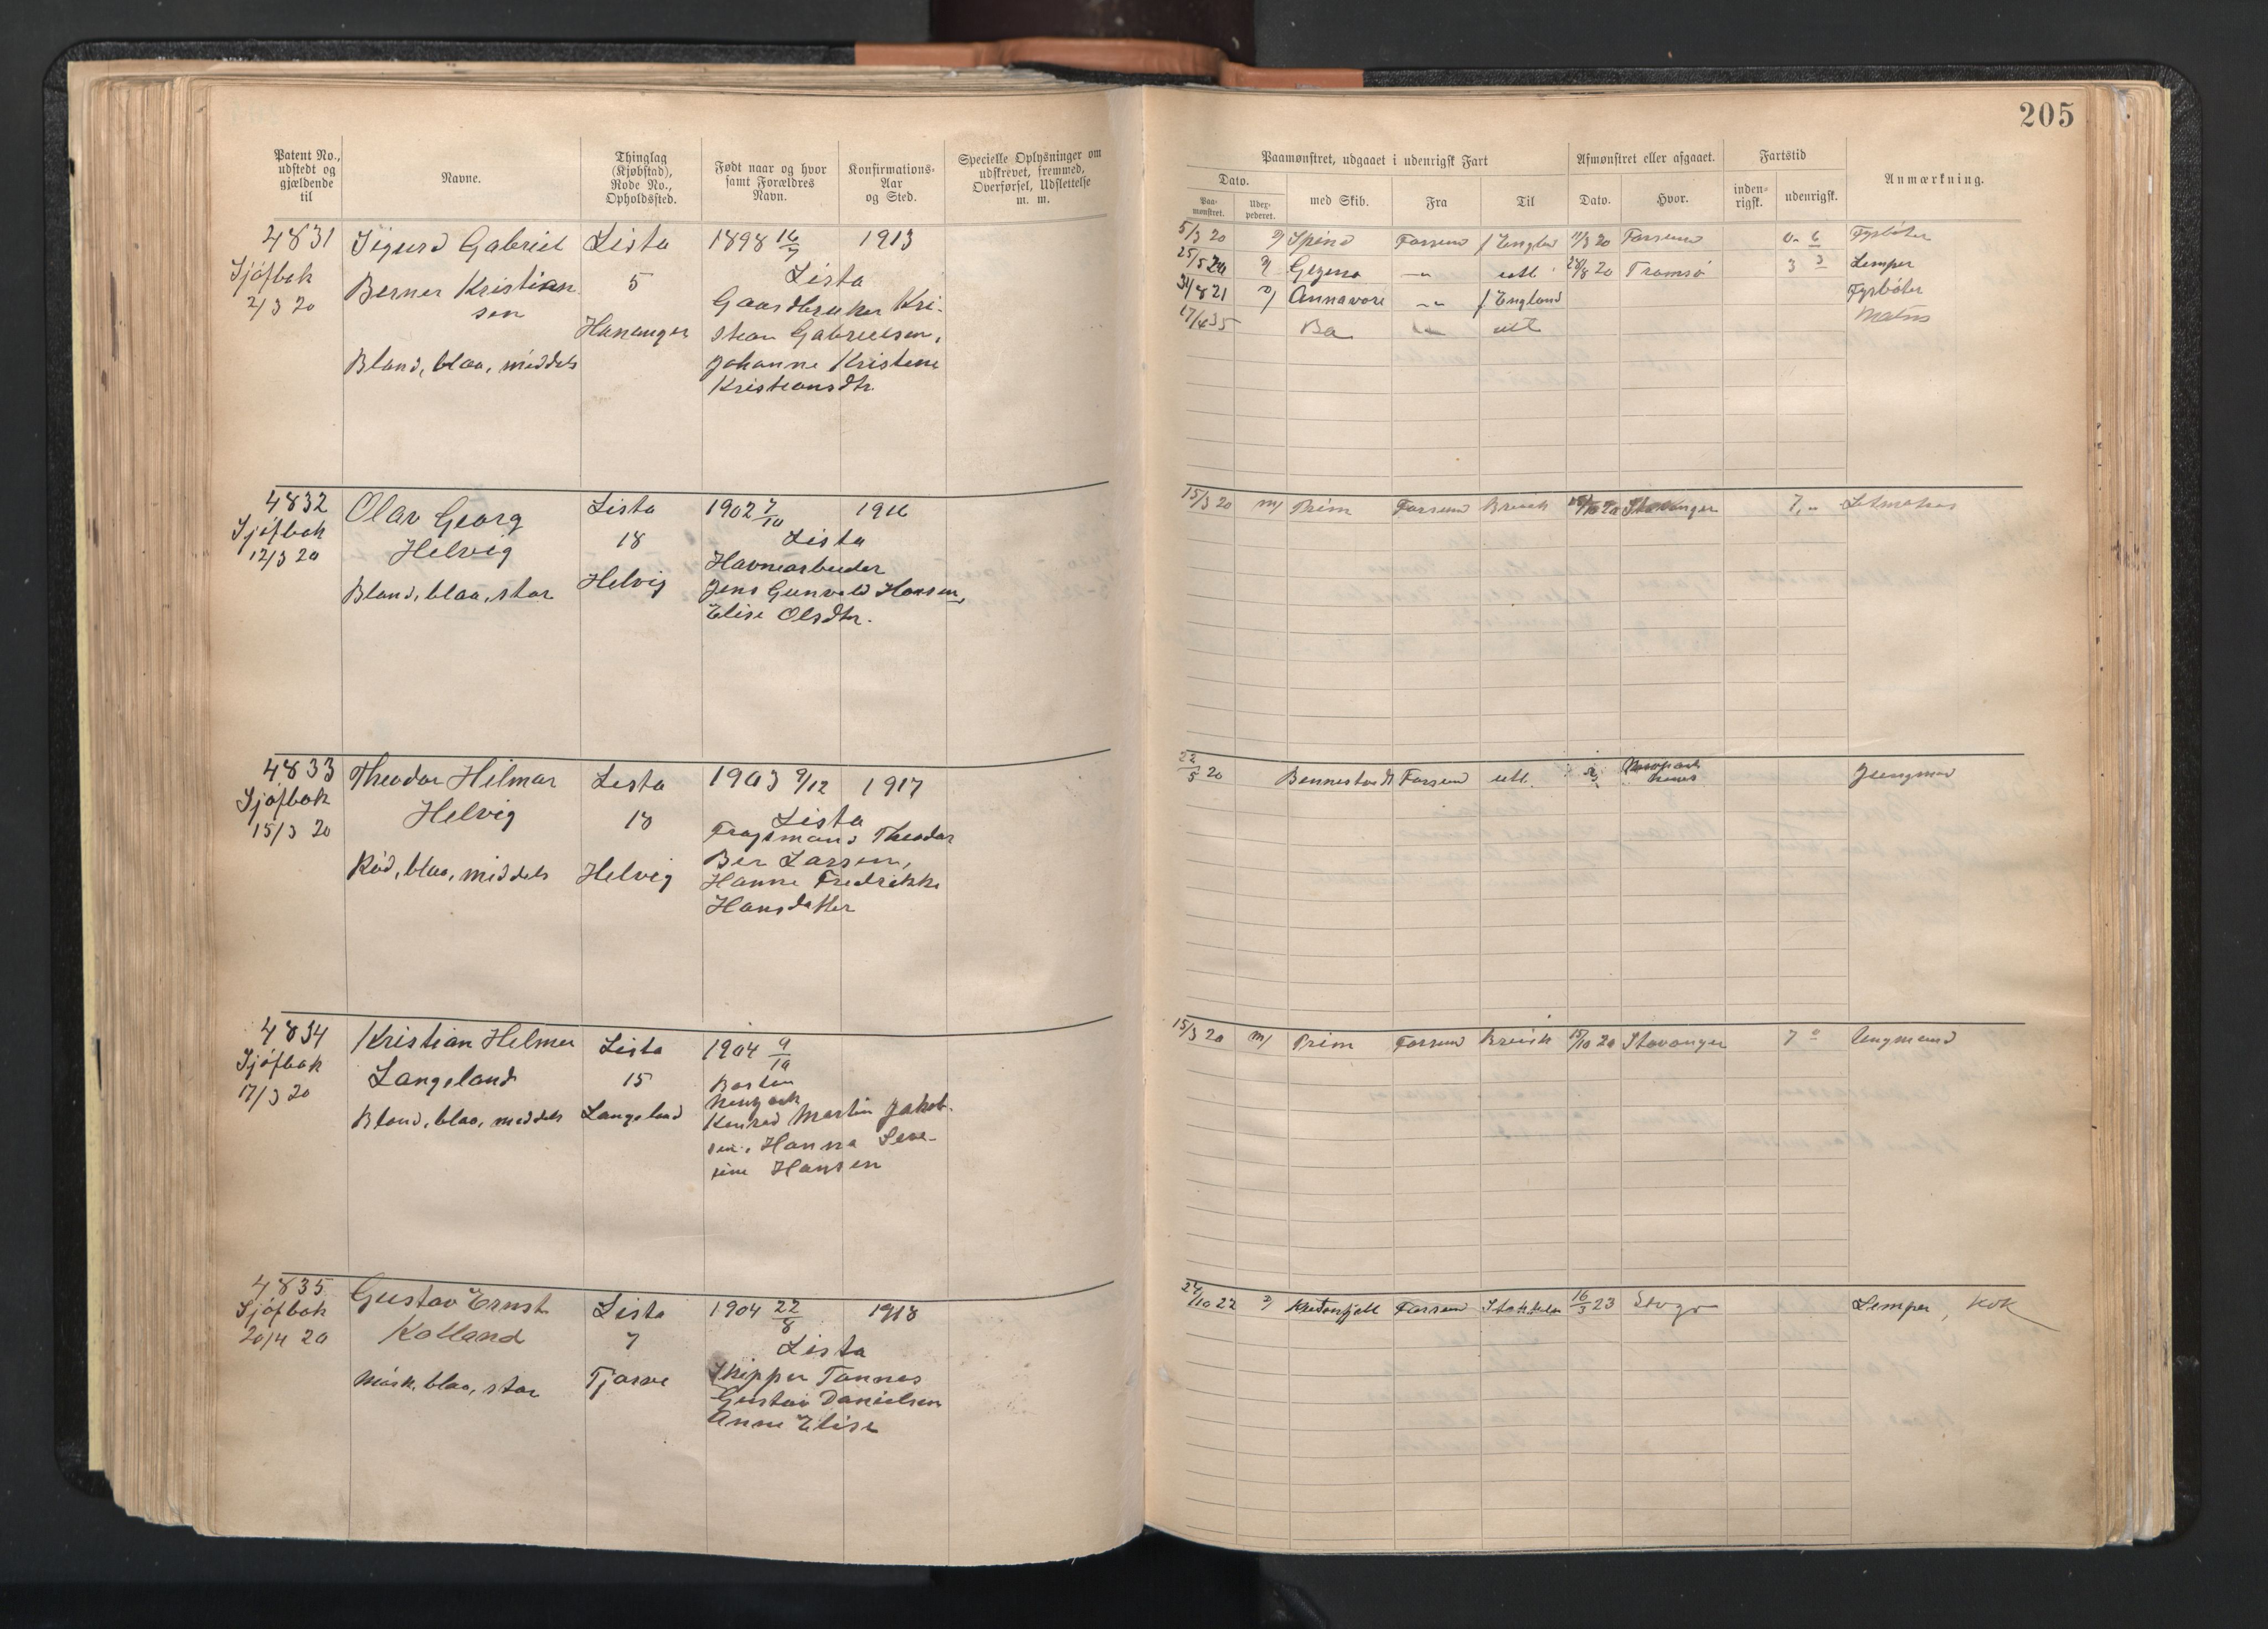 205
Patent No., udstedt og gjældende til
Navne.
Thinglag (Kjøbstad), Rode No., Opholdssted.
Født naar og hvor samt Forældres Navn.
Konfirmations-Aar og Sted.
Specielle Oplysninger om udskrevet, fremmed, Overførsel, Udslettelse m. m.
Paamønstret, udgaaet i udenrigsk Fart
Afmønstret eller afgaaet.
Fartstid
Anmærkning.
Dato.
Paa-mønstret.
Udex-pederet.
med Skib.
Fra
Til
Dato.
Hvor.
inden-rigsk.
udenrigsk.
4831
Sjøfbok
2/3 20
Sigurd Gabriel
Berner Kristian
sen
Blond, blaa, middels
Lista
5
Hananger
1898 16/7
1913
Lista
Gaardbruker Kri-
stian Gabrielsen,
Johanne Kristine
Kristiansdtr.
5/3 20 Spind Farsund f England 11/3 20 Farsund Fyrbøter
25/5 20 Gezena -"- utl 28/8 20 Tromsø 3 Lemper
31/8 21 Annavore -"- f England Fyrbøter
17/4 35 -"- utl
4832
Sjøfbok
12/3 20
Olav Georg
Helvig
Blond, blaa, stor
Lista
18
Helvig
1902 7/10
1916
Lista
Havnearbeider
Jens Gunvald Hansen,
Elise Olsdtr.
15/3 20 m/ Prim Farsund Brevik 15/10 20 Stavanger 7,-
4833
Sjøfbok
15/3 20
Theodor Hilmar
Helvig
Rød, blaa, middels
Lista
18
Helvig
1903 9/12
1917
Lista
Fragtmand Theodor
Ber Larsen,
Hanne Fredrikke
Hansdatter
22/5 20 Bennestvedt Farsund utl. Jungmand
4834
Sjøfbok
17/3 20
Kristian Helmer
Langeland
Blond, blaa, middels
Lista
15
Langeland
1904 9/10
Konrad Martin Jakob-
sen, Hanna Seve-
rine Hansen
15/3 20 m/ Prim Farsund Brevik 15/10 20 Stavanger 7 Ungmand
4835
Sjøfbok
20/4 20
Gustav Ernst
Kalland
Mørk, blaa, stor
Lista
7
Tjørve
1904 22/8
1918
Lista
Skipper Tønnes
Gustav Danielsen
Anne Elise
24/10 22 Farsund 16/3 23 Lemper, kok